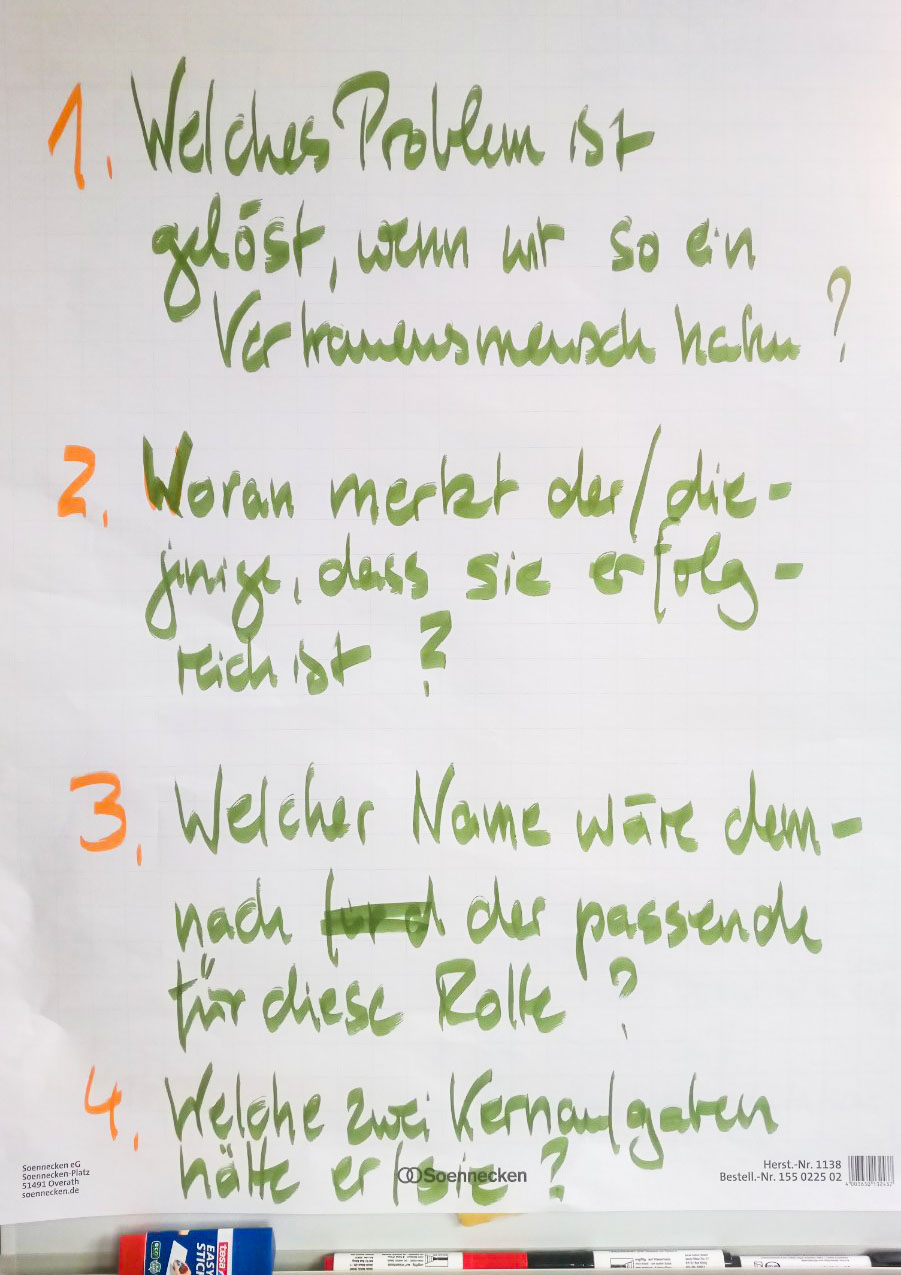 1. Welches Problem ist
gelöst, wenn wir so ein
Vertrauensmensch haben?
2. Woran merkt der/die-
jenige, dass sie erfolg-
reich ist?
3. Welcher Name wäre dem-
nach für d der passende
für diese Rolle?
4. Welche zwei Kernaufgaben
hätte er/sie?
Soennecken eG
Soennecken-Platz
51491 Overath
soennecken.de
Soennecken
Herst.-Nr. 1138
Bestell.-Nr. 155 0225 02
tesa
EASY
STICK
eco